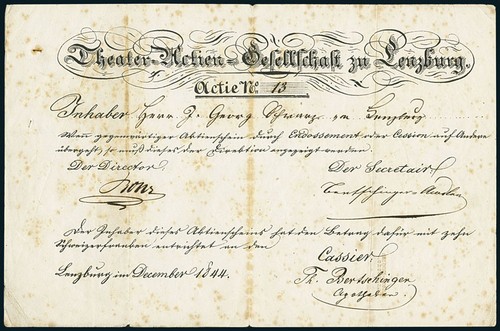 Theater-Actien-Gesellschaft zu Lenzburg.
Actie No. 13
Inhaber Herr J. Georg Schwarz in Lenzburg
Wenn gegenwärtiger Aktienschein durch Endossement oder Cession auf Andere
übergeht, so muß dieses der Direktion angezeigt werden.
Der Director
Der Secretair
Der Inhaber dieses Aktienscheins hat den Betrag dafür mit zehn
Schweizerfranken entrichtet an den
Cassier
Lenzburg im December 1844.
Th. Bertschinger
Apotheker.